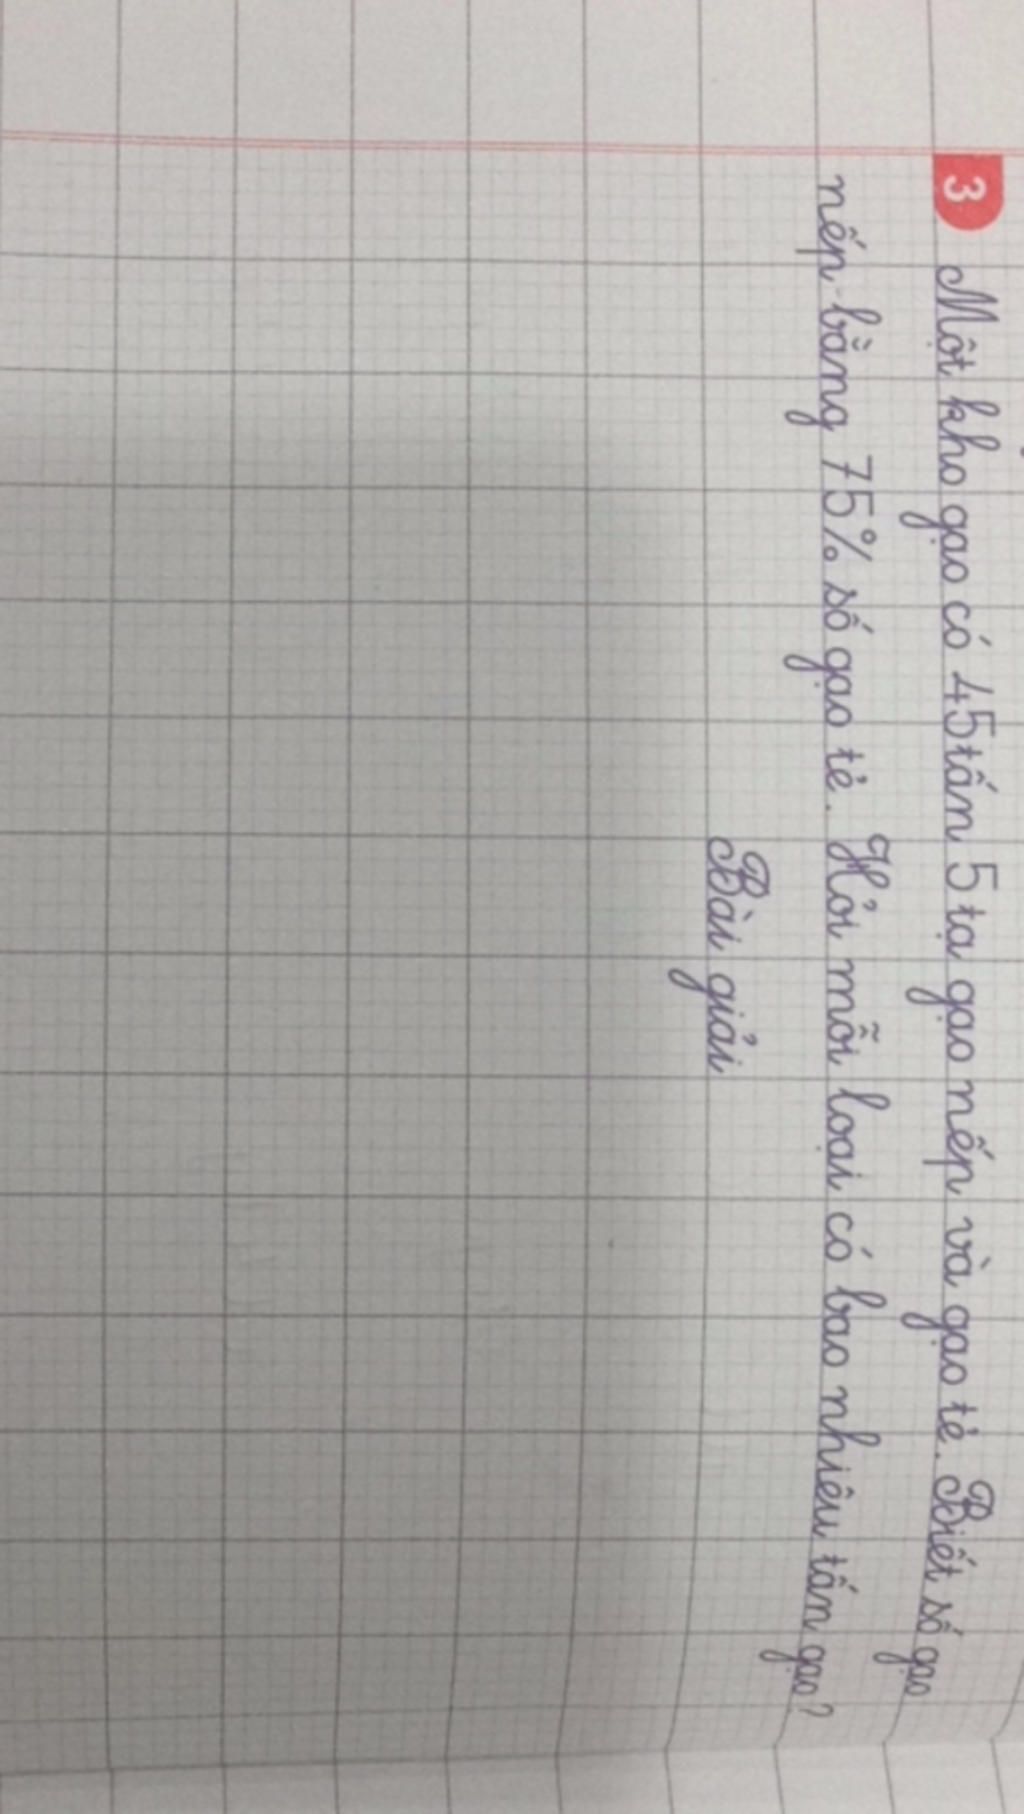 3 Một kho gạo có 45 tấn 5 tạ gạo nếp và gạo tẻ. Biết số gạo
nếp bằng 75% số gạo tẻ. Hỏi mỗi loại có bao nhiêu tấn gạo?
Bài giải